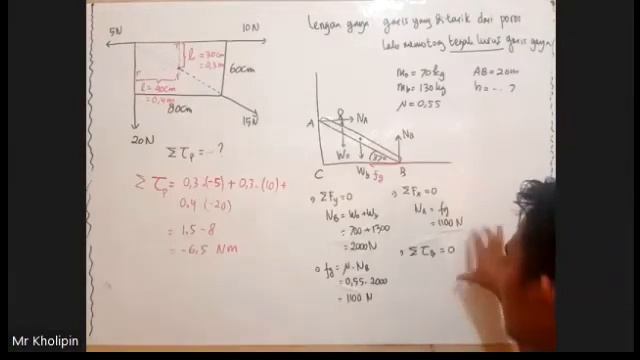 5N
10N
l = 30cm
= 0,3m
60cm
l = 40cm
= 0,4m
80cm
15N
20N
Στp = ...?
Στp = 0,3.(-5) + 0,3.(10) +
0,4(-20)
= 1.5 - 8
= -6,5 Nm
Lengan gaya garis yang ditarik dari poros
lalu memotong tegak lurus garis gaya
mo = 70kg
mb = 130kg
μ = 0,55
AB = 20m
h = ... ?
A
NA
NB
Wo
Wb
fg
C
B
ΣFy = 0
NB = Wo + Wb
= 700 + 1300
= 2000N
fg = μ. NB
= 0,55 . 2000
= 1100 N
ΣFx = 0
NA = fg
= 1100 N
ΣτB = 0
Mr Kholipin